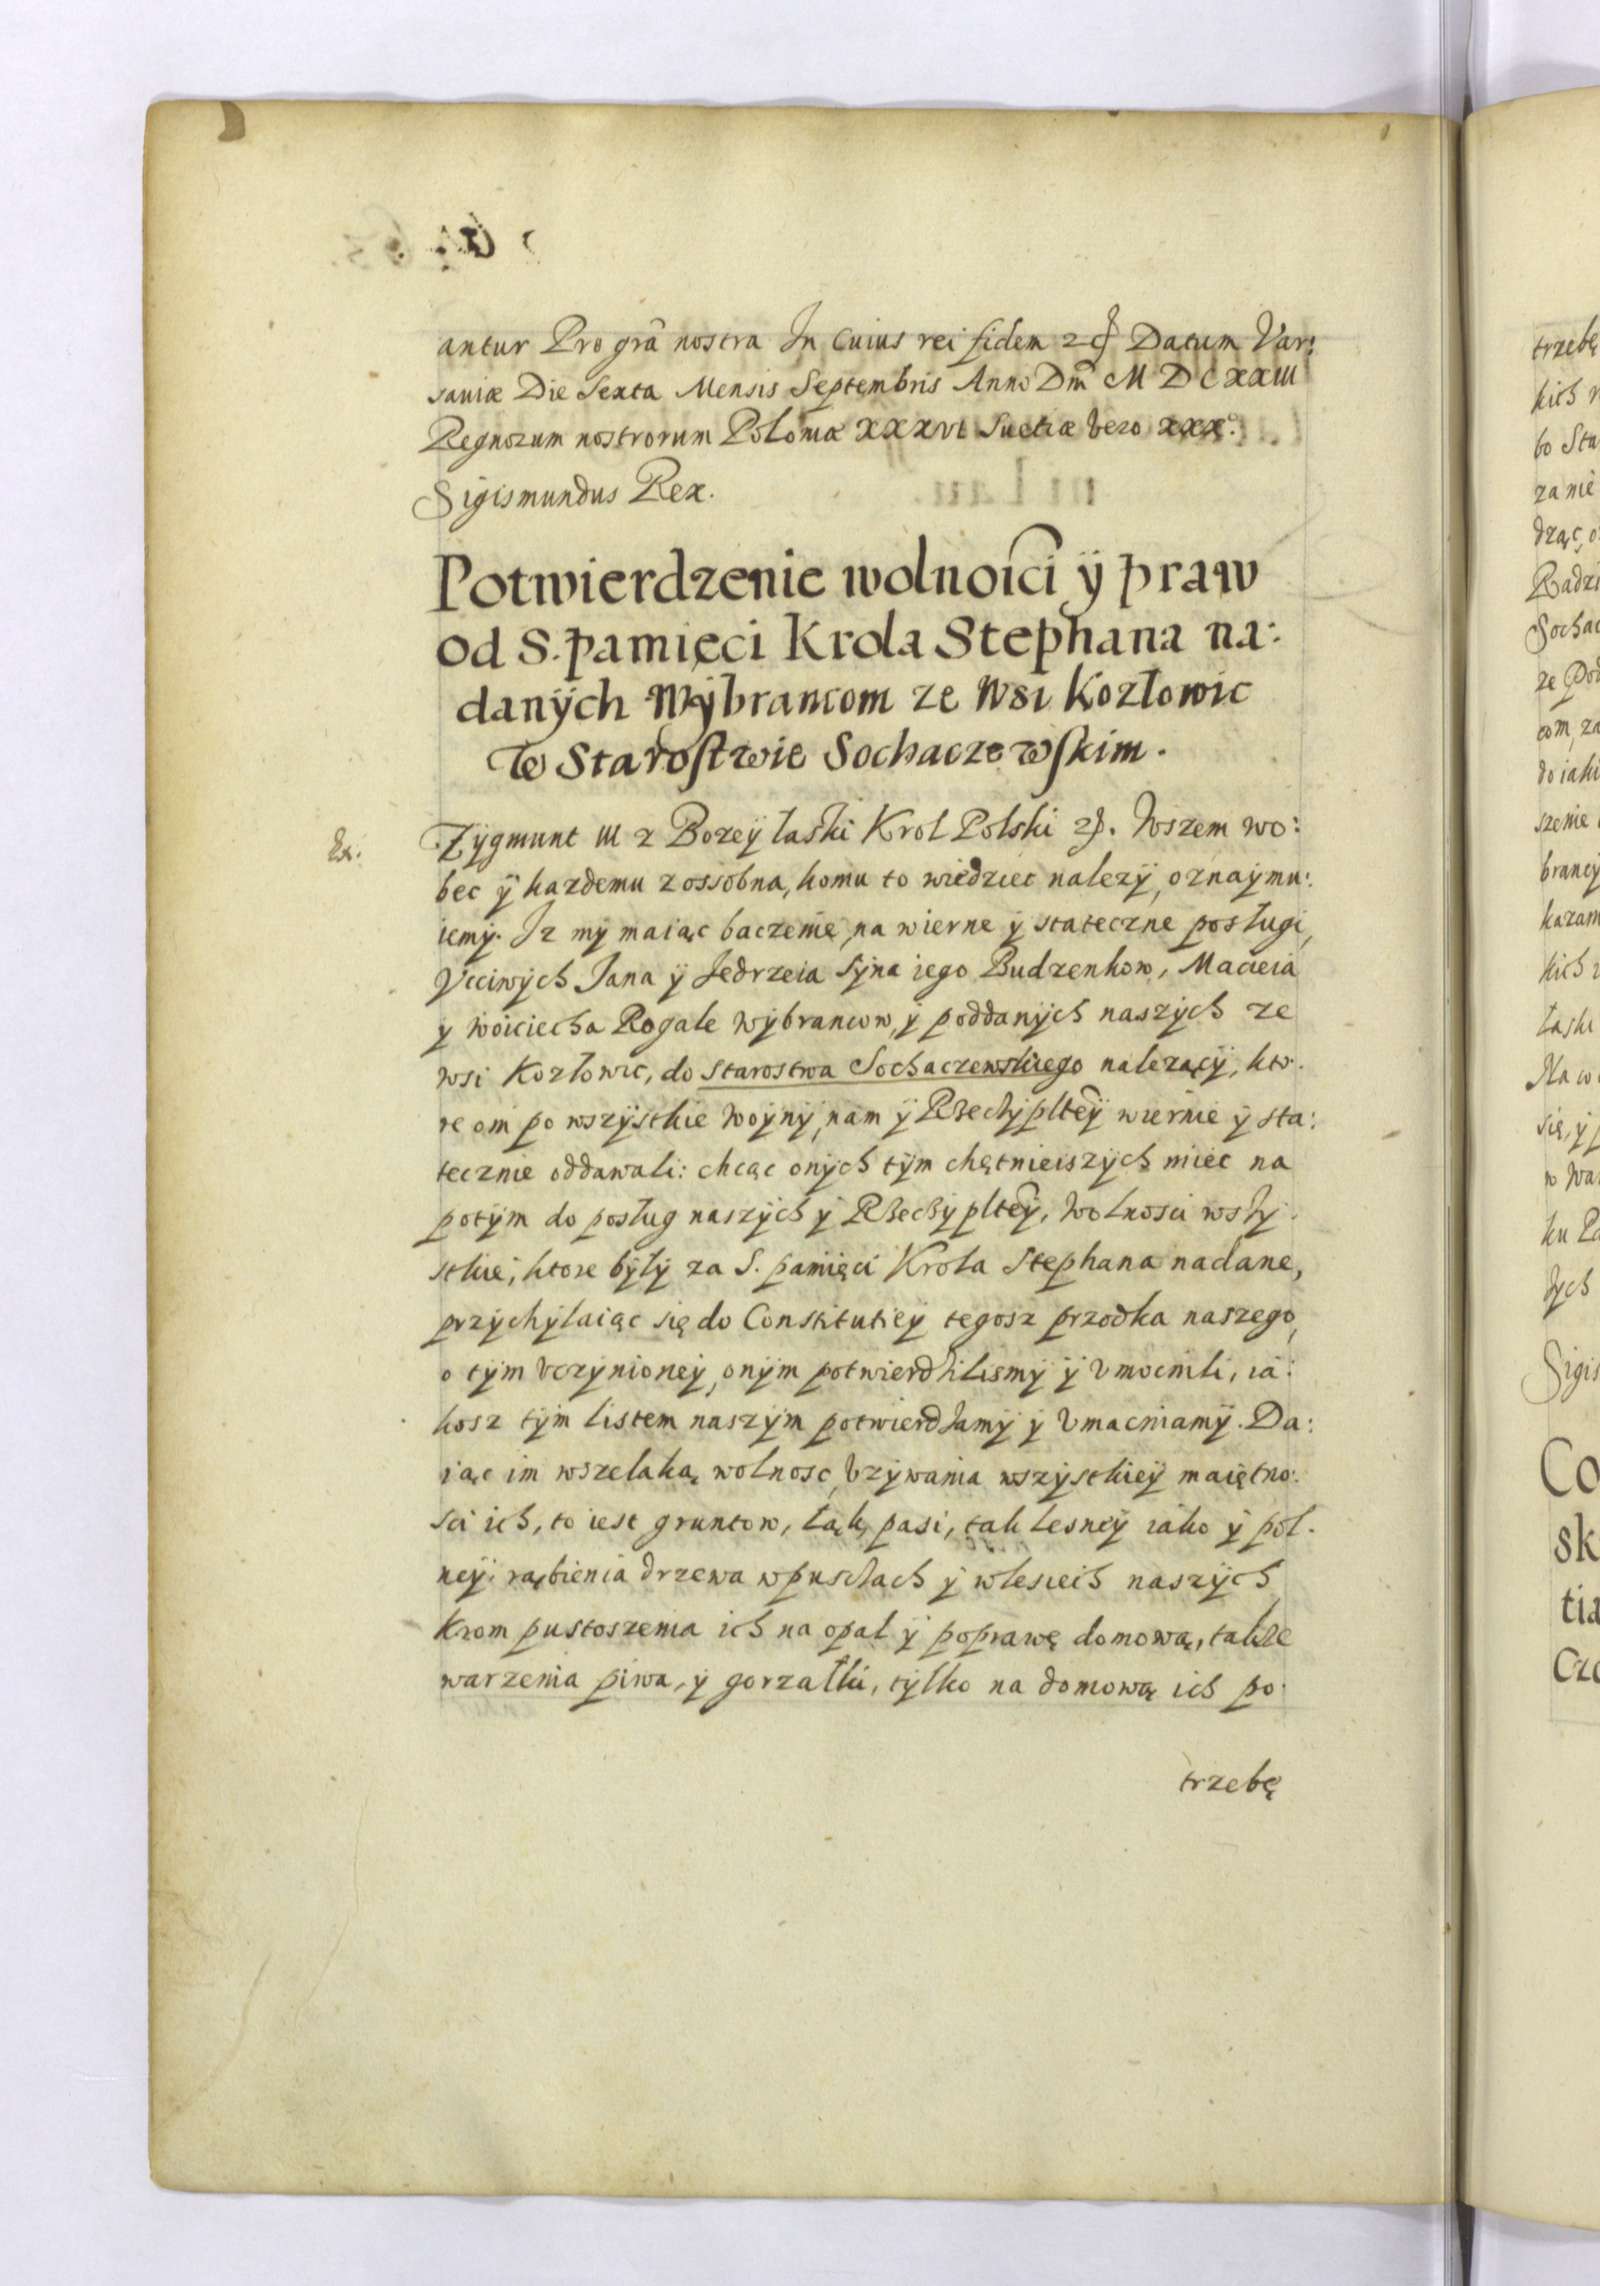 antur Pro grã nostra In Cuius rei fidem Datum Var:
saviæ Die Sexta Mensis Septembris Anno Dm̃ M D C XXIII
Regnorum nostrorum Poloniæ XXXVI Suetiæ vero XXX°.
Sigismundus Rex.
Potwierdzenie wolnosci ÿ praw
od S. pamięci Krola Stephana na:
danÿch Wÿbrancom ze Wsi Kozłowic
w Starostwie Sochaczewskim.
Ex:
Zÿgmunt III z Bozeÿ łaski Krol Polski Wszem wo:
bec ÿ kazdemu zossobna, komu to wiedziec nalezÿ, oznaÿmu:
iemÿ. Iz mÿ maiąc baczenie, na wierne ÿ stateczne posługi,
Vcciwÿch Jana ÿ Jedrzeia Sÿna iego Budzenkow, Macieia
ÿ Woiciecha Rogale Wÿbrancow, ÿ poddanÿch naszÿch ze
wsi Kozłowic, do Starostwa Sochaczewskiego nalezącÿ, kto:
re oni po wszÿstkie Woÿnÿ, nam ÿ Rzechÿplteÿ wiernie ÿ sta:
tecznie oddawali: chcąc onÿch tÿm chętnieiszÿch miec na
potÿm do posług naszÿch ÿ Rzechÿplteÿ, Wolnosci wszÿ:
stkie, ktore bÿłÿ za S. pamięci Krola Stephana nadane,
przÿchÿlaiąc się do Constitutieÿ tegosz przodka naszego,
o tÿm vczÿnioneÿ, onÿm potwierdzilismÿ ÿ vmocnili, ia:
kosz tÿm listem naszÿm potwierdzamÿ ÿ vmacniamÿ. Da:
iąc im wszelaką wolnosc, vzÿwania wszÿstkieÿ maiętno:
sci ich, to iest gruntow, łąk, pasi, tak lesneÿ iako ÿ pol:
neÿ: rąbienia drzewa w puszczach ÿ w lesiech naszÿch,
krom pustoszenia ich na opał ÿ poprawę domową, takze
warzenia piwa, ÿ gorzałki, tÿlko na domową ich po:
trzebę